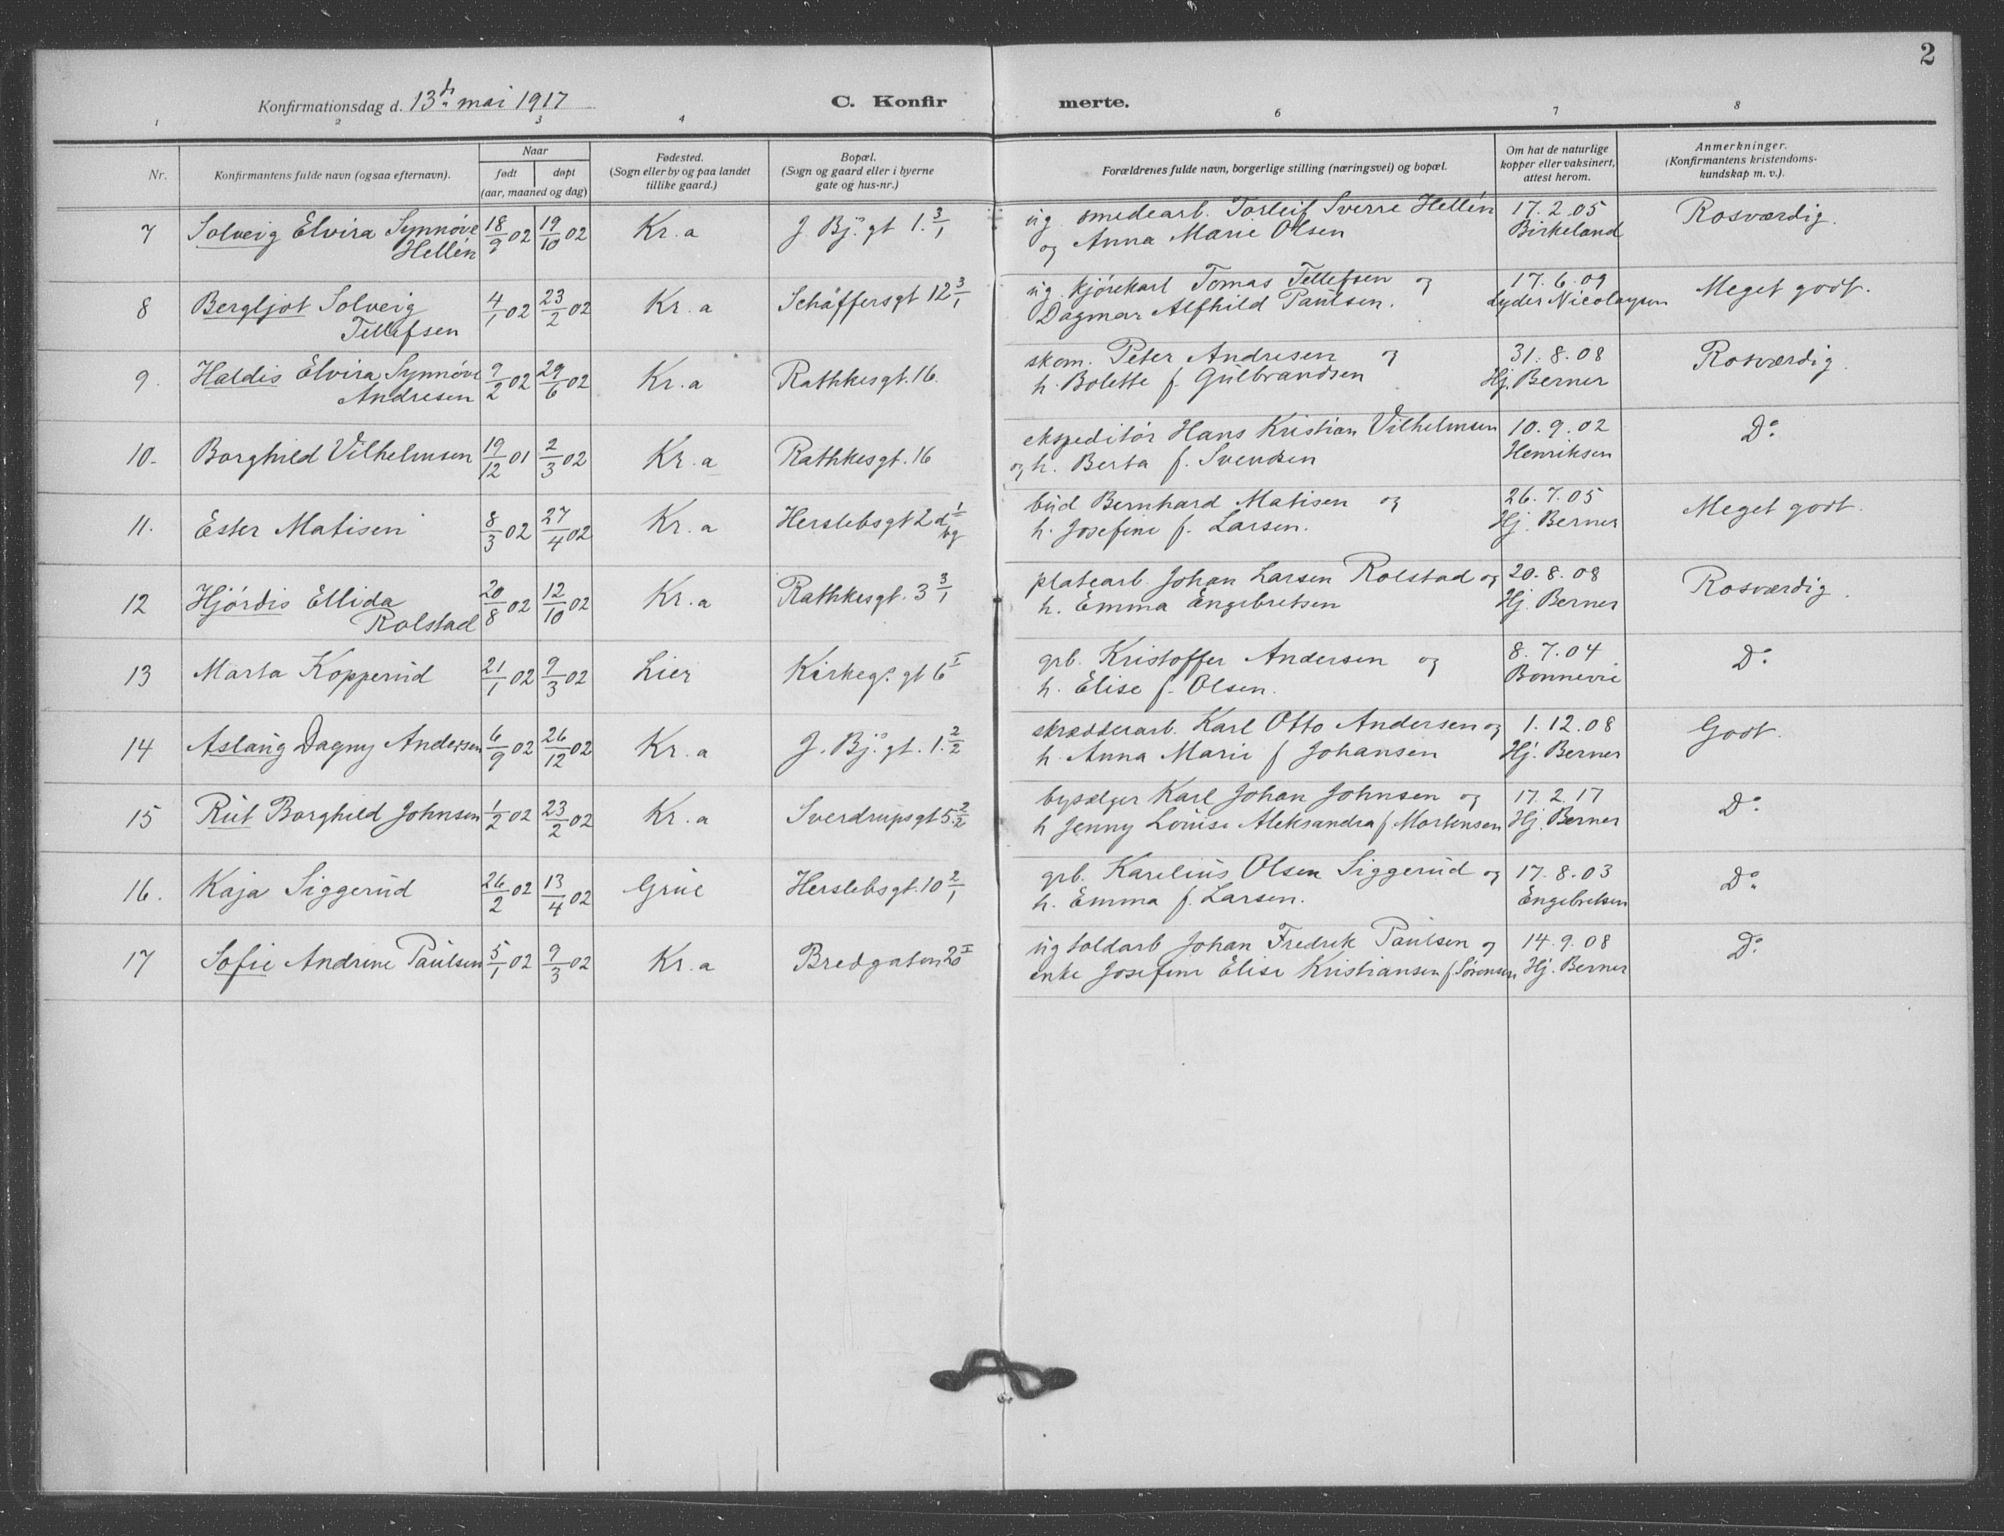 2
Konfirmationsdag d. 13de mai 1917
C. Konfirmerte.
1 2 3 4 6 7 8
Nr.
Konfirmantens fulde navn (ogsaa efternavn).
Naar
født
døpt
(aar, maaned og dag)
Fødested.
(Sogn eller by og paa landet
tillike gaard.)
Bopæl.
(Sogn og gaard eller i byerne
gate og hus-nr.)
Forældrenes fulde navn, borgerlige stilling (næringsvei) og bopæl.
Om hat de naturlige
kopper eller vaksinert,
attest herom.
Anmerkninger.
(Konfirmantens kristendoms-
kundskap m. v.).
7 Solveig Elvira Synnøve 18/9 02 19/10 02 Kr.a J. Bj. gt 1. 3/1 ug. smedearb. Torleif Sverre Hellén 17.2.05 Rosværdig.
Hellén og Anna Marie Olsen Birkeland
8 Bergljot Solveig 4/1 02 23/2 02 Kr.a Schäffersgt 12 3/1 ug. kjørekarl Tomas Tellefsen og 17.6.09 Meget godt.
Tellefsen Dagmar Alfhild Paulsen. Lyder Nicolaysen
9. Haldis Elvira Synnøve 9/2 02 29/6 02 Kr.a Rathkesgt. 16. skom. Peter Andresen og 31.8.08 Rosværdig.
Andresen h. Bolette f. Gulbrandsen Hj. Berner
10. Borghild Vilhelmsen 19/12 01 2/3 02 Kr.a Rathkesgt. 16 ekspeditør Hans Kristian Vilhelmsen 10.9.02 Do
og h. Berta f. Svendsen Henriksen
11. Ester Matisen 8/3 02 27/4 02 Kr.a Herslebsgt 2d 1/bg bud Bernhard Matisen og 26.7.05 Meget godt.
h. Josefine f. Larsen. Hj. Berner
12 Hjördis Ellida 20/8 02 12/10 02 Kr.a Rathkesgt. 3 3/1 platearb. Johan Larsen Rolstad og 20.8.08 Rosværdig.
Rolstad h. Emma Engebretsen Hj. Berner
13 Marta Kopperud 21/1 02 9/3 02 Lier Kirkeg. gt 6 I grb. Kristoffer Andersen og 8.7.04 Do
h. Elise f. Olsen. Bonnevie
14 Aslaug Dagny Andersen 6/9 02 26/12 02 Kr.a J. Bj. gt. 1. 2/2 skrædderarb. Karl Otto Andersen og 1.12.08 Godt.
h. Anna Marie f Johansen Hj. Berner
15 Rut Borghild Johnsen 1/2 02 23/2 02 Kr.a Sverdrupsgt 5. 2/2 bysælger Karl Johan Johnsen og 17.2.17 Do
h Jenny Louise Aleksandra f Mortensen Hj. Berner
16. Kaja Siggerud 26/2 02 13/4 02 Grue Herslebsgt. 10 2/1 grb. Karelius Olsen Siggerud og 17.8.03 Do
h. Emma f. Larsen. Engebretsen
17 Sofie Andrine Paulsen 5/1 02 9/3 02 Kr.a Bredgaten 20 I ug toldarb Johan Fredrik Paulsen og 14.9.08 Do
enke Josefine Elise Kristiansen f Sørensen Hj. Berner